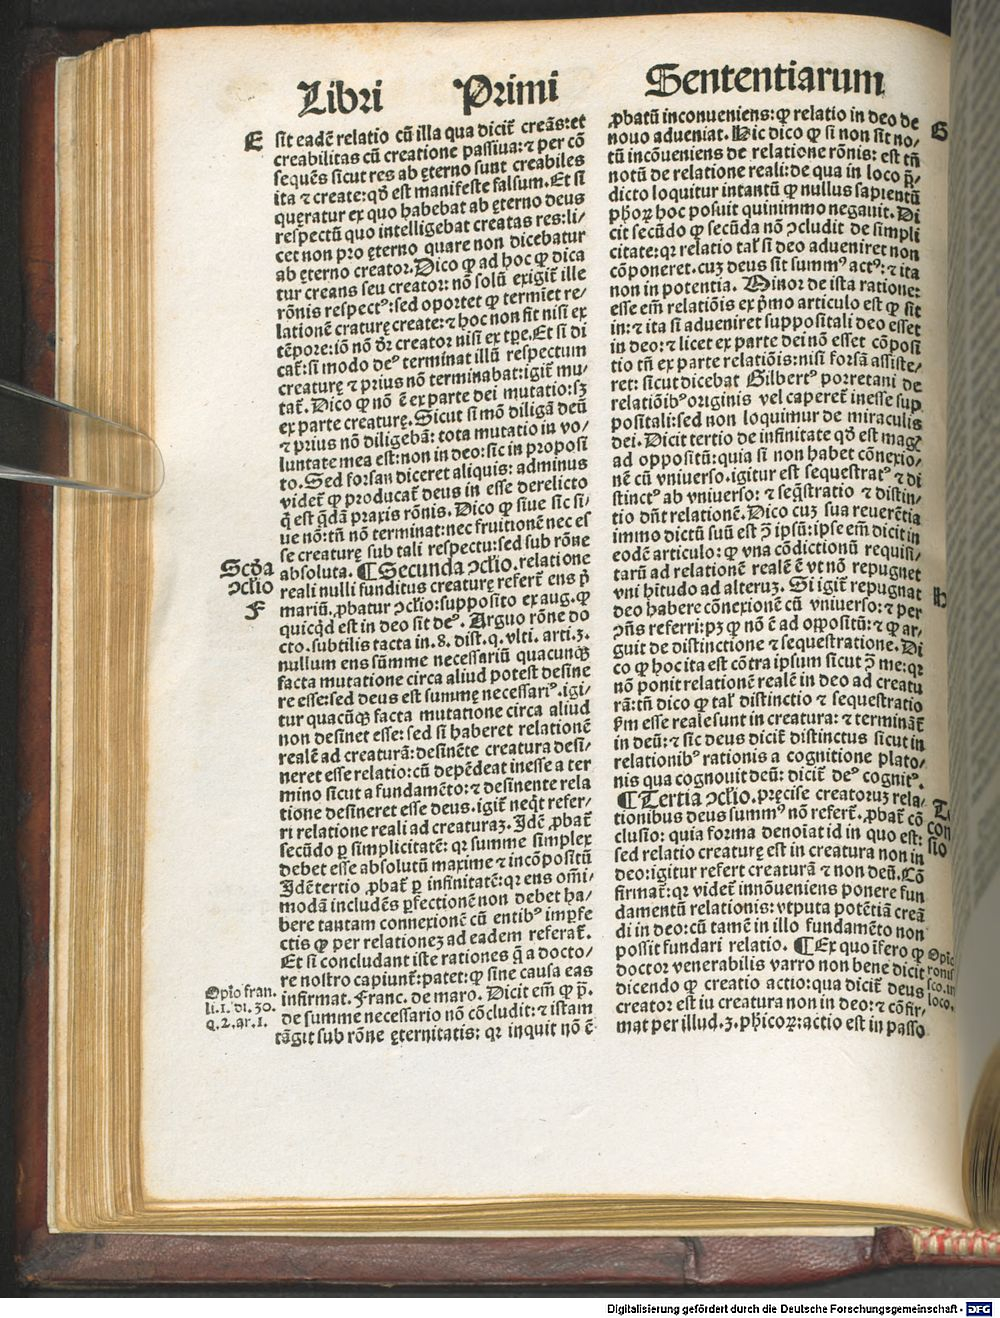 Libri Primi Sententiarum
E
sit eadē relatio cū illa qua dicit̄ creās: et
creabilitas cū creatione passiua: ⁊ per cō
sequēs sicut res ab ęterno sunt creabiles
ita ⁊ create: qḋ est manifeste falsum. Et si
quęratur ex quo habebat ab ęterno deus
respectū quo intelligebat creatas res: li⸗
cet non pro ęterno quare non dicebatur
ab ęterno creator. Dico ꝙ ad hoc ꝙ dica
tur creans seu creator: nō solū exigit̄ ille
rōnis respectꝰ: sed oportet ꝙ termīet re⸗
lationē craturę create: ⁊ hoc non fit nisi ex
tēpore: iō nō dr̄ creator nisi ex tp̄e. Et si di
cat̄: si modo deꝰ terminat illū respectum
creaturę ⁊ prius nō terminabat: igit̄ mu⸗
tat̄. Dico ꝙ nō ē ex parte dei mutatio: sꝫ
ex parte creaturę. Sicut si mō diligā deū
⁊ prius nō diligebā: tota mutatio in vo⸗
luntate mea est: non in deo: sic in proposi
to. Sed forsan diceret aliquis: adminus
videt̄ ꝙ producat̄ deus in esse derelicto
q̄ est q̄dā praxis rōnis. Dico ꝙ siue sic si⸗
ue nō: tn̄ nō terminat: nec fruitionē nec es
se creaturę sub tali respectu: sed sub rōne
absoluta. ¶ Secunda ɔclio. relatione
reali nulli funditus creaturę refert̄ ens p̄
mariū. ꝓbatur ɔclio: supposito ex aug. ꝙ
quicqd est in deo sit deꝰ. Arguo rōne do
cto. subtilis tacta in. 8. dist. q. vlti. arti. 3.
nullum ens sūmme necessariū quacunqꝫ
facta mutatione circa aliud potest desine
re esse: sed deus est summę necessariꝰ. igi⸗
tur quacūqꝫ facta mutatione circa aliud
non desinet esse: sed si haberet relationē
realē ad creaturā: desinēte creatura desi⸗
neret esse relatio: cū depēdeat inesse a ter
mino sicut a fundamēto: ⁊ desinente rela
tione desineret esse deus. igit̄ neqt̄ refer⸗
ri relatione reali ad creaturaꝫ. Idē ꝓbat̄
secūdo ꝑ simplicitatē: qꝛ summe simplex
debet esse absolutū maxime ⁊ incōpositū
Idē tertio ꝓbat̄ ꝑ infinitatē: qꝛ ens omī⸗
modā includēs ꝑfectionē non debet ha⸗
bere tantam connexionē cū entibꝰ imꝑfe
ctis ꝙ per relationeꝫ ad eadem referat̄.
Et si concludant iste rationes q̄ a docto⸗
re nostro capiunt̄: patet: ꝙ sine causa eas
infirmat. Franc. de maro. Dicit em̄ ꝙ p̄.
de summe necessario nō cōcludit: ⁊ istam
tāgit sub rōne ęternitatis: qꝛ inquit nō ē
Scḋa
ɔclio
F
Opīo fran.
li. 1. di. 30.
q. 2. ar. 1.
ꝓbatū inconueniens: ꝙ relatio in deo de
nouo adueniat. Hic dico ꝙ si non sit no⸗
tū incōueniens de relatione rōnis: est tn̄
notū de relatione reali: de qua in loco p̄⸗
dicto loquitur intantū ꝙ nullus sapientū
ph̄oꝝ hoc posuit quinimmo negauit. Di
cit secūdo ꝙ secūda nō ɔcludit de simpli
citate: qꝛ relatio tal̄ si deo adueniret non
cōponeret. cuꝫ deus sit summꝰ actꝰ: ⁊ ita
non in potentia. Minor de ista ratione:
esse em̄ relatiōis ex p̄mo articulo est ꝙ sit
in: ⁊ ita si adueniret suppositali deo esset
in deo: ⁊ licet ex parte dei nō esset cōposi
tio tn̄ ex parte relatiōis: nisi forsā assiste⸗
ret: sicut dicebat Gilbertꝰ porretani de
relatiōibꝰ originis vel caperet̄ inesse sup
positali: sed non loquimur de miraculis
dei. Dicit tertio de infinitate qḋ est mag̃
ad oppositū: quia si non habet cōnexio⸗
nē cū vniuerso. igitur est sequestratꝰ ⁊ di
stinctꝰ ab vniuerso: ⁊ seq̄stratio ⁊ distin⸗
tio dn̄t relationē. Dico cuꝫ sua reuerētia
immo dictū suū est ɔ̄ ipsū: ipse em̄ dicit in
eodē articulo: ꝙ vna cōdictionū requisi⸗
tarū ad relationē realē ē vt nō repugnet
vni hitudo ad alteruꝫ. Si igit̄ repugnat
deo habere cōnexionē cū vniuerso: ⁊ per
ɔn̄s referri: pꝫ ꝙ nō ē ad oppositū: ⁊ ꝙ ar⸗
guit de distinctione ⁊ sequestratione. Di
co ꝙ hoc ita est cōtra ipsum sicut ɔ̄ me: qꝛ
nō ponit relationē realē in deo ad creatu
rā: tn̄ dico ꝙ tal̄ distinctio ⁊ sequestratio
ẜm esse reale sunt in creatura: ⁊ termināt̄
in deū: ⁊ sic deus dicit̄ distinctus sicut in
relationibꝰ rationis a cognitione plato⸗
nis qua cognouit deū: dicit̄ deꝰ cognitꝰ.
¶ Tertia ɔclio. pręcise creatoruꝫ rela⸗
tionibus deus summꝰ nō refert̄. ꝓbat̄ cō
clusio: quia forma denoīat id in quo est:
sed relatio creaturę est in creatura non in
deo: igitur refert creaturā ⁊ non deū. Cō
firmat̄: qꝛ videt̄ innōueniens ponere fun
damentū relationis: vtputa potētiā creā
di in deo: cū tamē in illo fundamēto non
possit fundari relatio. ¶ Ex quo īfero ꝙ
doctor venerabilis varro non bene dicit
dicendo ꝙ creatio actio: qua dicit̄ deus
creator est iu creatura non in deo: ⁊ cōfir⸗
mat per illud. 3. ph̄icoꝝ: actio est in passo
G
H
con
sio
Opīo
ronis
sco. in
loco.
Digitalisierung gefördert durch die Deutsche Forschungsgemeinschaft - DFG